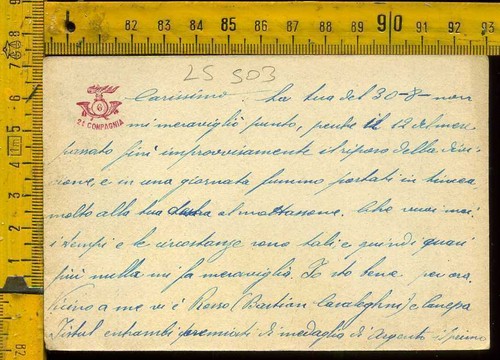 82 83 84 85 86 87 88 89 90 91 92 93
LS 503
6
21 COMPAGNIA
Carissimo. La tua del 30-8- non
mi meraviglió punto, perché il 12 del mese
passato finì improvvisamente il riposo della divi-
sione, e in una giornata fummo portati in linea
molto alla tua destra al mattassone. Che vuoi mai
i tempi e le circostanze sono tali e quindi quasi
più nulla mi fa meraviglia. Io sto bene. per ora.
Vicino a me vi è Rosso (Bastian e Canepa
entrambi premiati di medaglia d'Argento il primo